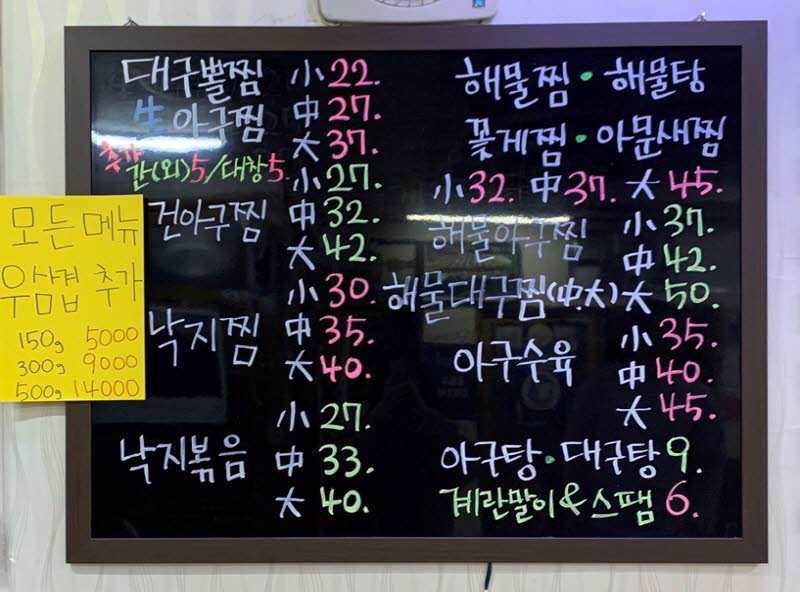 대구뽈찜 小 22.
生 아구찜 中 27.
大 37.
추가 간(외)5/대창5.
小 27.
건아구찜 中 32.
大 42.
小 30.
낙지찜 中 35.
大 40.
小 27.
낙지볶음 中 33.
大 40.
해물찜・해물탕
꽃게찜・아문새찜
小 32. 中 37. 大 45.
해물아구찜 小 37.
中 42.
해물대구찜(中.大) 大 50.
小 35.
아구수육 中 40.
大 45.
아구탕・대구탕 9.
계란말이&스팸 6.
모든메뉴
우삼겹 추가
150g 5000
300g 9000
500g 14000